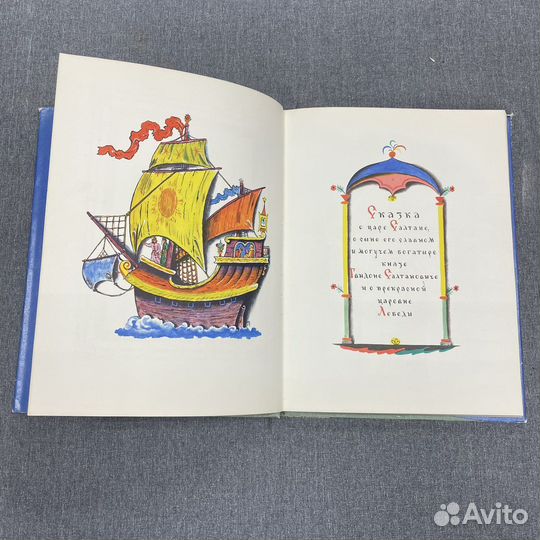 Сказка
о царе Салтане,
о сыне его славном
и могучем богатыре
князе
Гвидоне Салтановиче
и о прекрасной
царевне
Лебеди
Avito